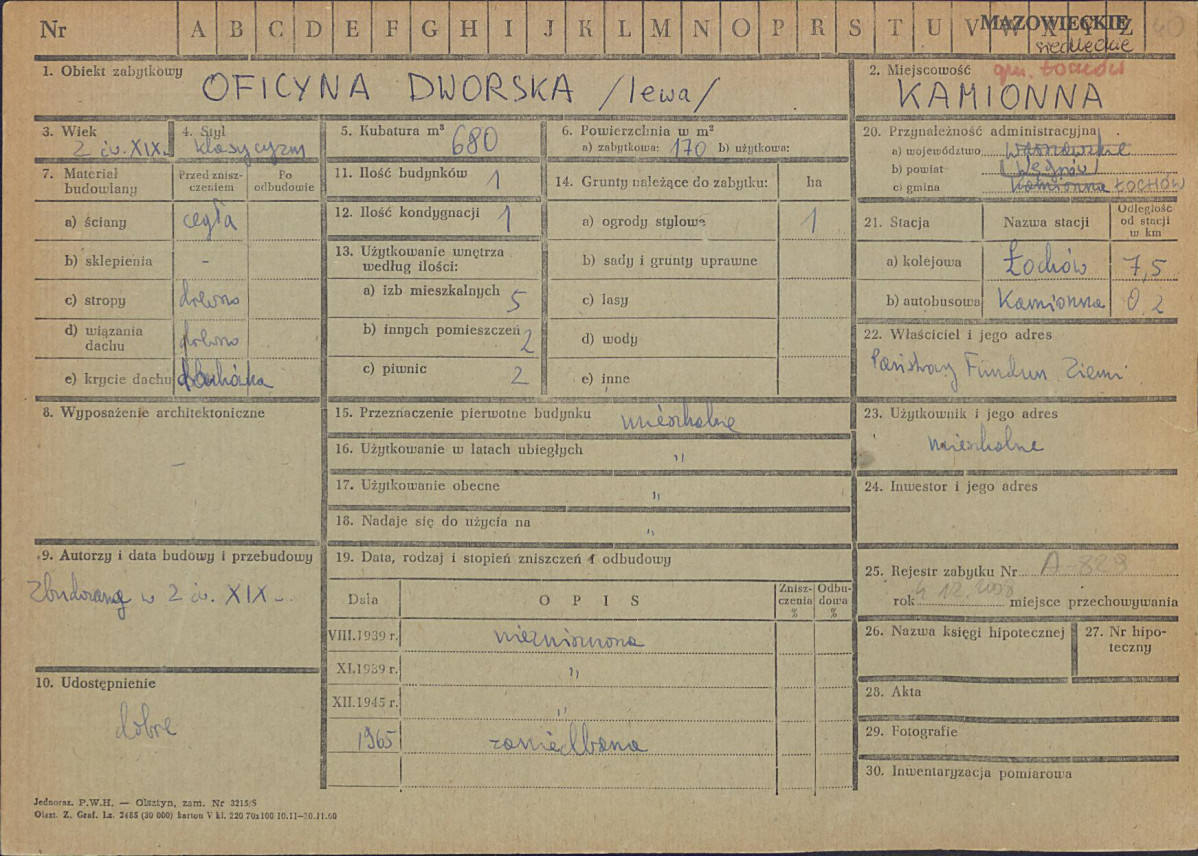 Nr A B C D E F G H I J K L M N O P R S T U V W X Y Z 40
MAZOWIECKIE
siedleckie
gm. ŁOCHÓW
1. Obiekt zabytkowy
OFICYNA DWORSKA /lewa/
2. Miejscowość
KAMIONNA
3. Wiek
2 ćw. XIX w.
4. Styl
klasycyzm
5. Kubatura m³ 680
6. Powierzchnia w m²
a) zabytkowa: 170 b) użytkowa:
7. Materiał budowlany
Przed zniszczeniem
Po odbudowie
a) ściany cegła
b) sklepienia -
c) stropy drewno
d) wiązania dachu drewno
e) krycie dachu dachówka
8. Wyposażenie architektoniczne
-
9. Autorzy i data budowy i przebudowy
Zbudowana w 2 ćw. XIX w.
10. Udostępnienie
dobre
11. Ilość budynków 1
12. Ilość kondygnacji 1
13. Użytkowanie wnętrza według ilości:
a) izb mieszkalnych 5
b) innych pomieszczeń 2
c) piwnic 2
14. Grunty należące do zabytku: ha
a) ogrody stylowe 1
b) sady i grunty uprawne
c) lasy
d) wody
e) inne
15. Przeznaczenie pierwotne budynku mieszkalne
16. Użytkowanie w latach ubiegłych "
17. Użytkowanie obecne "
18. Nadaje się do użycia na "
19. Data, rodzaj i stopień zniszczeń i odbudowy
Data OPIS Zniszczenia % Odbudowa %
VIII.1939 r. niezniszczona
XI.1939 r. "
XII.1945 r. "
1965 zaniedbana
20. Przynależność administracyjna
a) województwo
b) powiat Węgrów
c) gmina Kamionna ŁOCHÓW
21. Stacja Nazwa stacji Odległość od stacji w km
a) kolejowa Łochów 7,5
b) autobusowa Kamionna 0,2
22. Właściciel i jego adres
Państwowy Fundusz Ziemi
23. Użytkownik i jego adres
mieszkalne
24. Inwestor i jego adres
25. Rejestr zabytku Nr A-829
rok 4.12.2008 miejsce przechowywania
26. Nazwa księgi hipotecznej
27. Nr hipoteczny
28. Akta
29. Fotografie
30. Inwentaryzacja pomiarowa
Jednoraz. P.W.H. — Olsztyn, zam. Nr 3215/S
Olszt. Z. Graf. Lz. 2485 (30 000) karton V kl. 220 70x100 10.11—20.11.60